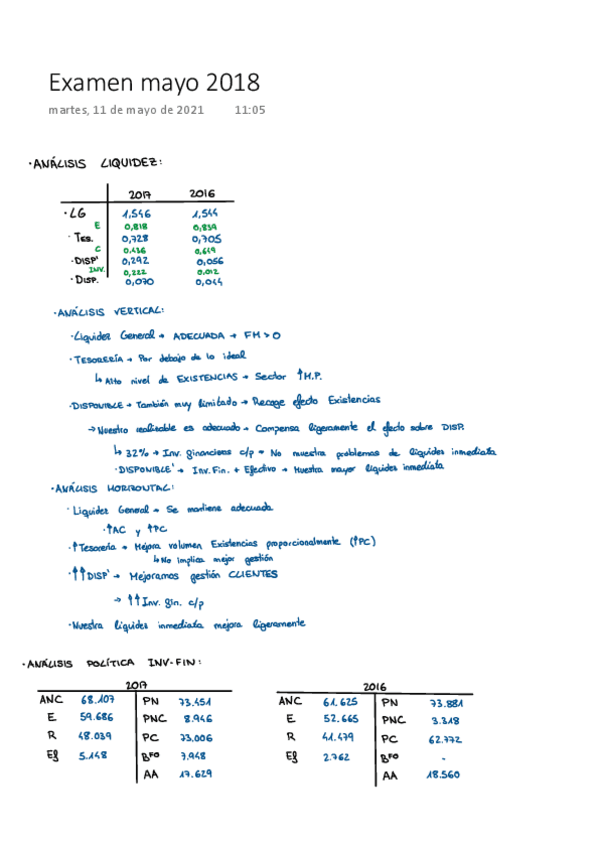 Examen mayo 2018
martes, 11 de mayo de 2021 11:05
· ANÁLISIS LIQUIDEZ:
2017 2016
· LG 1,546 1,544
E 0,818 0,839
· TES. 0,728 0,705
C 0,436 0,649
· DISP' 0,292 0,056
INV. 0,222 0,012
· DISP. 0,070 0,044
· ANÁLISIS VERTICAL:
· Liquidez General → ADECUADA → FM > 0
· TESORERÍA → Por debajo de lo ideal
↳ Alto nivel de EXISTENCIAS → Sector ↑M.P.
· DISPONIBLE → También muy limitado → Recoge efecto Existencias
→ Nuestro realizable es adecuado → Compensa ligeramente el efecto sobre DISP.
↳ 32% → Inv. financieras c/p → No muestra problemas de liquidez inmediata
· DISPONIBLE' → Inv. Fin. + Efectivo → Muestra mayor liquidez inmediata
· ANÁLISIS HORIZONTAL:
· Liquidez General → Se mantiene adecuada
· ↑AC y ↑PC
· ↑Tesorería → Mejora volumen Existencias proporcionalmente (↑PC)
↳ No implica mejor gestión
· ↑↑DISP' → Mejoramos gestión CLIENTES
→ ↑↑ Inv. fin. c/p
· Nuestra liquidez inmediata mejora ligeramente
· ANÁLISIS POLÍTICA INV-FIN:
2017
ANC 68.107 PN 73.451
E 59.686 PNC 8.946
R 48.039 PC 73.006
Ef 5.148 Bfo 7.948
AA 17.629
2016
ANC 61.625 PN 73.881
E 52.665 PNC 3.318
R 41.479 PC 62.772
Ef 2.762 Bfo -
AA 18.560